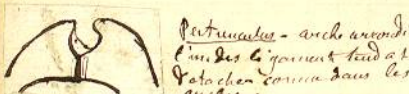 Pectunculus - arche arrondi
l'un des ligaments tend à
détacher comme dans les